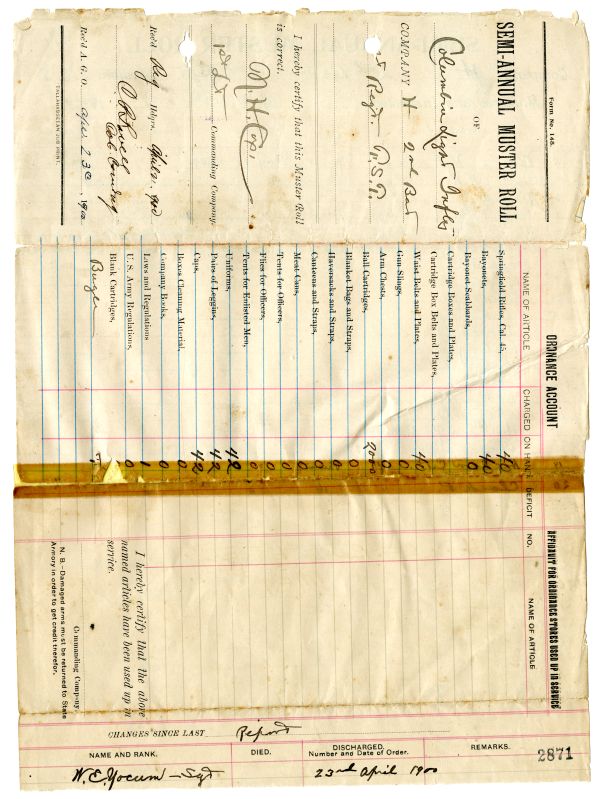 Form No. 148.
SEMI-ANNUAL MUSTER ROLL
OF
Columbia Light Inft
COMPANY H 2nd Bat
1st Regt. F.S.T.
I hereby certify that this Muster Roll
is correct.
1st Lt
Commanding Company.
Rec'd Reg Hdqrs. April 21 1900
Col Comdng
Rec'd A. G. O. April 23d 1900
TALLAHASSEEAN JOB PRINT.
ORDNANCE ACCOUNT
NAME OF ARTICLE CHARGED ON HAND DEFICIT
Springfield Rifles, Cal. 45, 40
Bayonets, 40
Bayonet Scabbards, 0
Cartridge Boxes and Plates,
Cartridge Box Belts and Plates,
Waist Belts and Plates, 40
Gun Slings, 0
Arm Chests, 0
Ball Cartridges, 2000
Blanket Bags and Straps, 0
Haversacks and Straps, 0
Canteens and Straps, 0
Meat Cans, 0
Tents for Officers, 0
Flies for Officers, 0
Tents for Enlisted Men, 0
Uniforms, 42
Pairs of Leggins, 42
Caps, 42
Boxes Cleaning Material, 0
Company Books, 0
Laws and Regulations 1
U. S. Army Regulations,
Blank Cartridges,
Bugle
AFFIDAVIT FOR ORDINANCE STORES USED UP IN SERVICE
NO. NAME OF ARTICLE
I hereby certify that the above
named articles have been used up in
service.
Commanding Company
N. B.—Damaged arms must be returned to State
Armory in order to get credit therefor.
CHANGES SINCE LAST Report
NAME AND RANK. DIED. DISCHARGED. Number and Date of Order. REMARKS.
2871
W. E. Yocum — Sgt 23rd April 1900